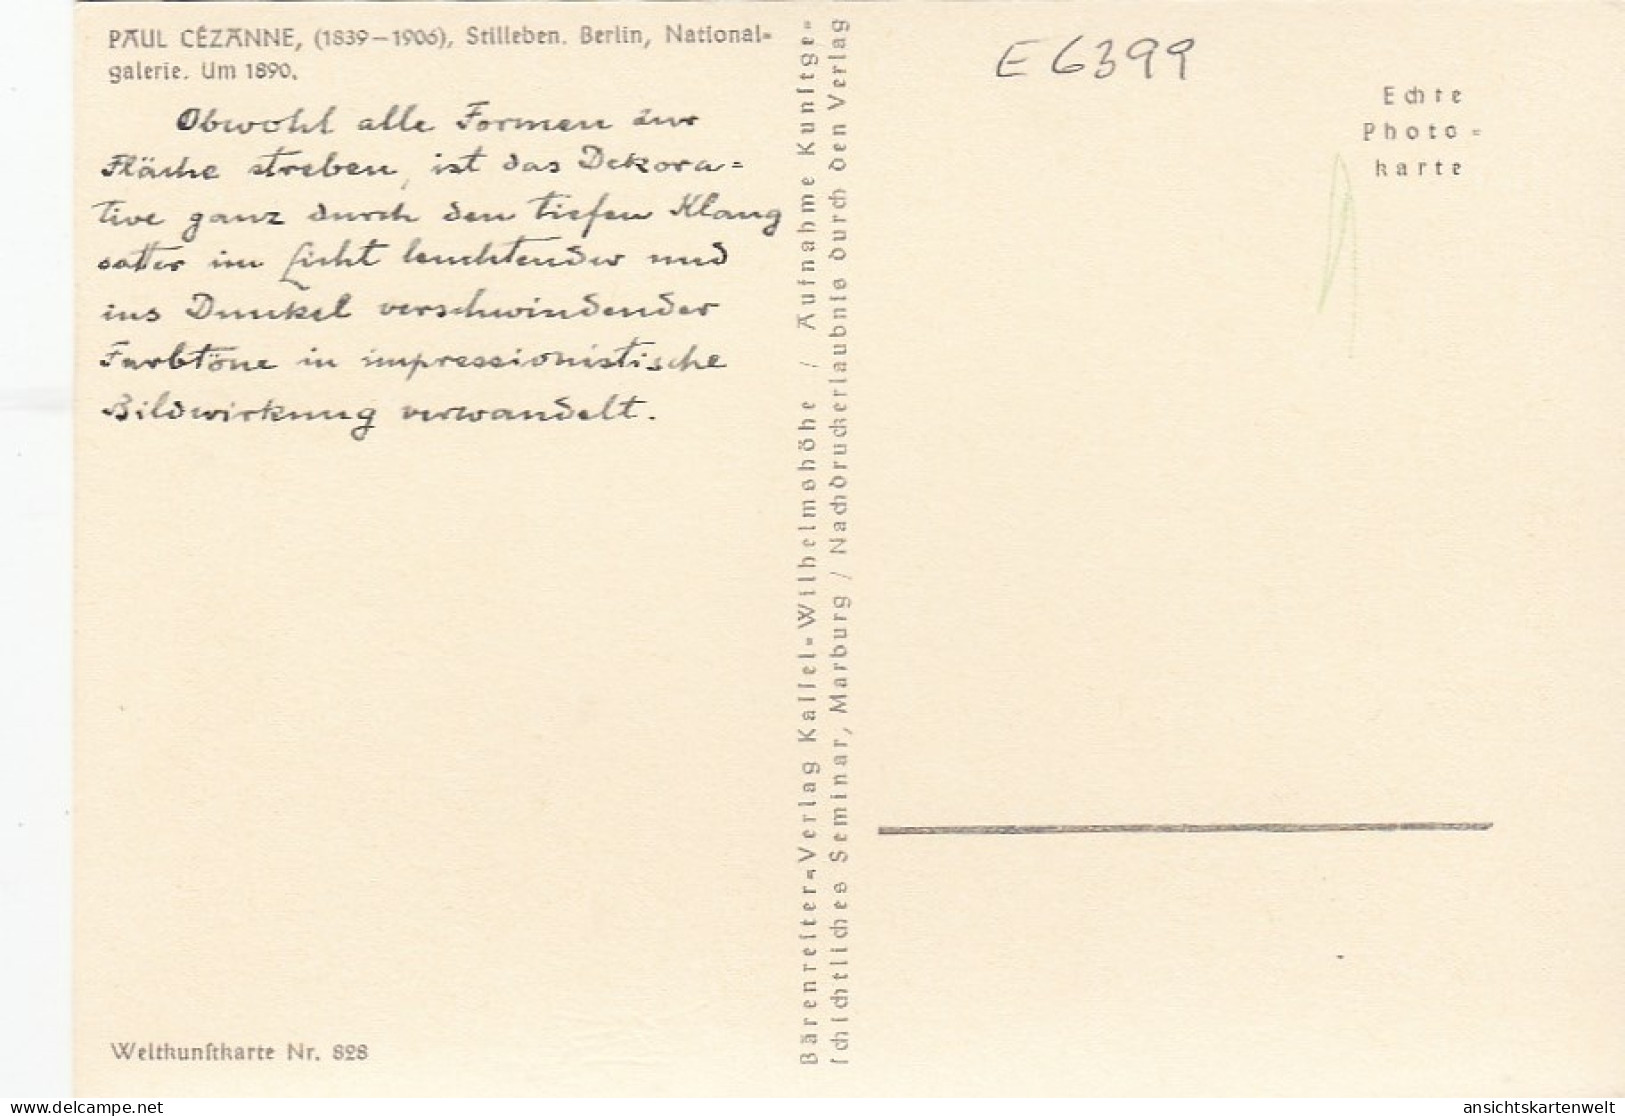 PAUL CÉZANNE, (1839–1906), Stilleben. Berlin, National-
galerie. Um 1890.
Obwohl alle Formen zur
Fläche streben, ist das Dekora=
tive ganz durch den tiefen Klang
satter im Licht leuchtender und
ins Dunkel verschwindender
Farbtöne in impressionistische
Bildwirkung verwandelt.
Weltkunſtkarte Nr. 828
Bärenreiter-Verlag Kaſſel-Wilhelmshöhe / Aufnahme Kunſtge-
ſchichtliches Seminar, Marburg / Nachdruckerlaubnis durch den Verlag
E 6399
Echte
Photo-
karte
hosting delcampe.net
ansichtskartenwelt